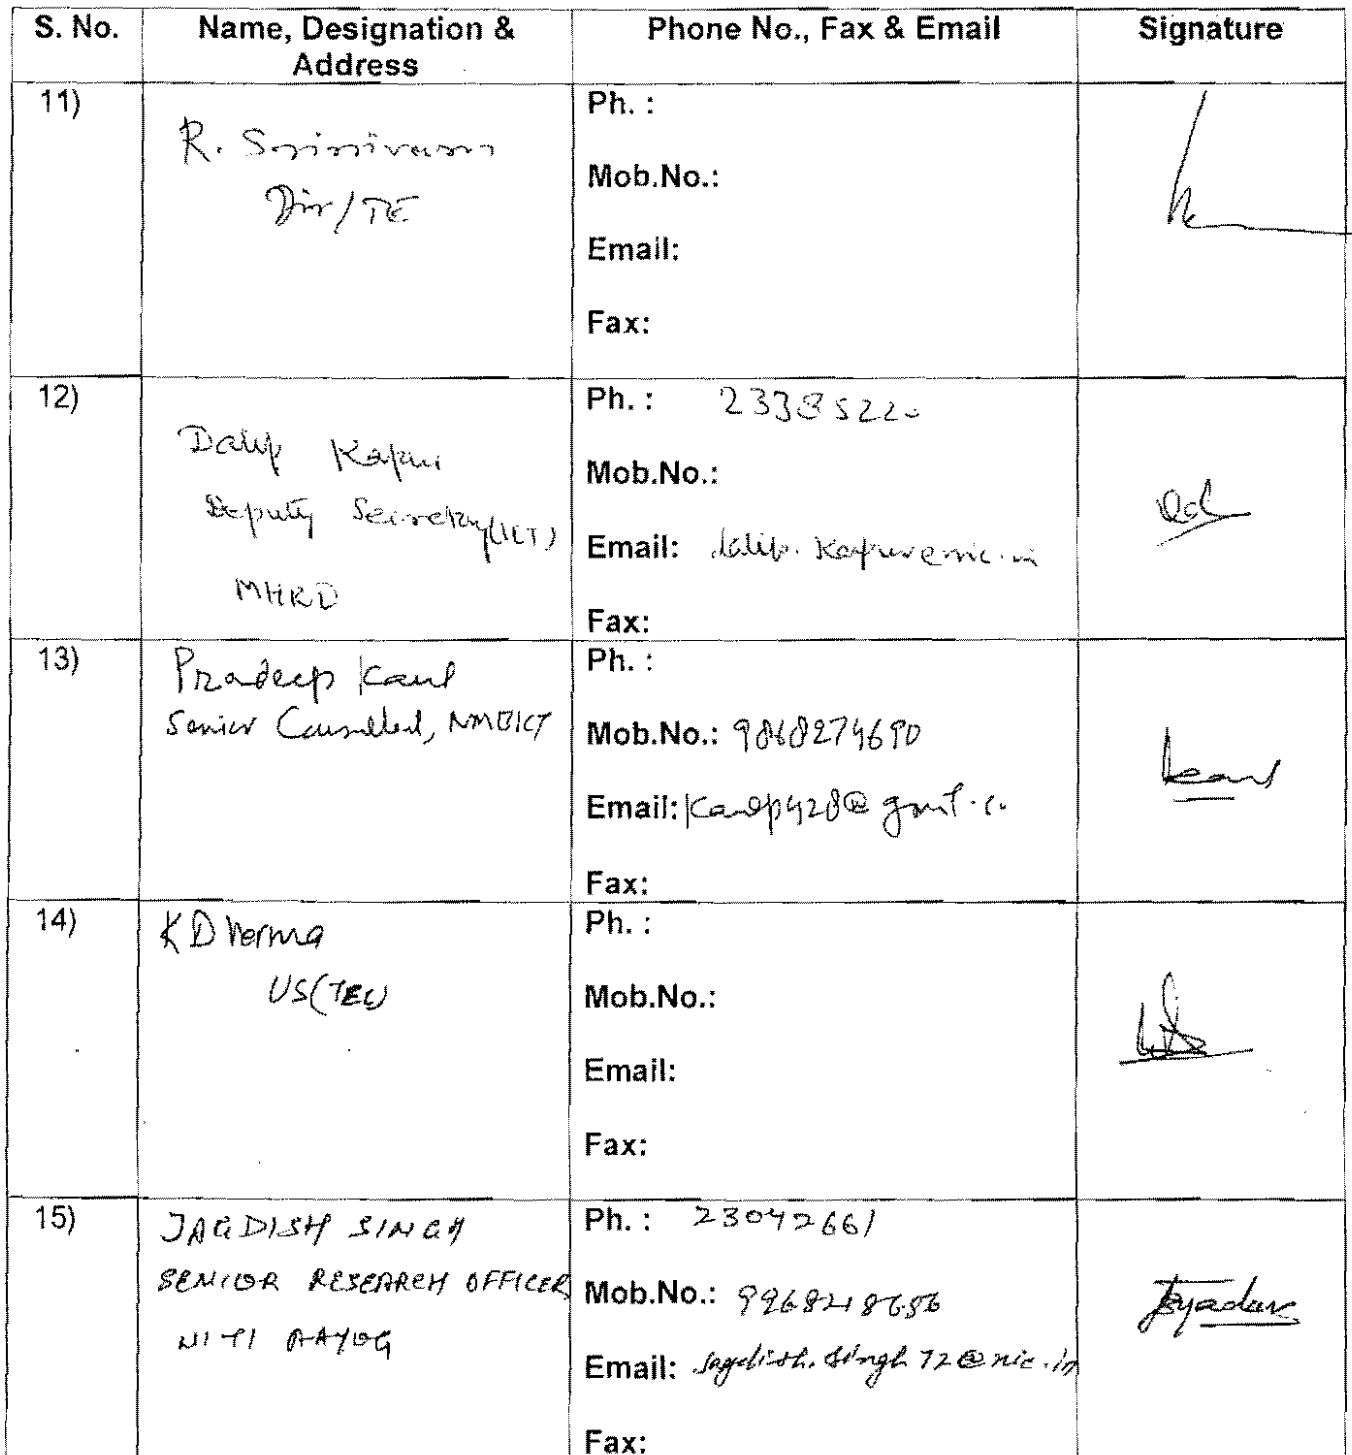 S. No. Name, Designation & Address Phone No., Fax & Email Signature
11)
R. Srinivasan
Dir/TE
Ph. :
Mob.No.:
Email:
Fax:
12)
Dalip Kapur
Deputy Secretary(ICT)
MHRD
Ph. : 23385220
Mob.No.:
Email: dalip.kapur@nic.in
Fax:
13)
Pradeep Kaul
Senior Consultant, NMEICT
Ph. :
Mob.No.: 9868274690
Email: kaulp428@gmail.c
Fax:
Kaul
14)
K D Verma
US(TEL)
Ph. :
Mob.No.:
Email:
Fax:
15)
JAGDISH SINGH
SENIOR RESEARCH OFFICER
NITI AAYOG
Ph. : 23042661
Mob.No.:
Email: Jagdish.singh72@nic.in
Fax: